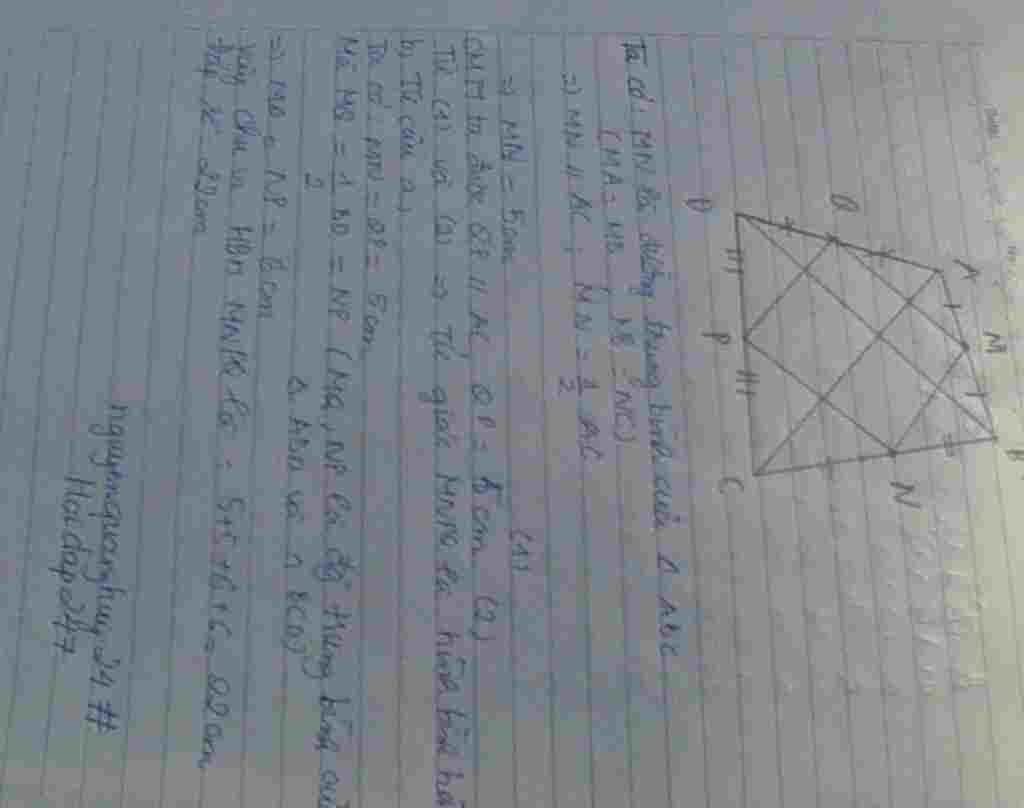 A
M
Q
N
D
P
C
Ta có: MN là đường trung bình của Δ ABC
(MA = MB, NB = NC)
=> MN // AC; MN = 1/2 AC
=> MN = 5 cm (1)
CMTT ta được QP // AC, QP = 5 cm (2)
Từ (1) và (2) => Tứ giác MNPQ là hình bình hà
b) Từ câu a)
Ta có: MN = QP = 5 cm
Mà MQ = 1/2 BD = NP (MQ, NP là đg trung bình củ
Δ ABD và Δ BCD)
=> MQ = NP = 6 cm
Vậy chu vi HBH MNPQ là: 5+5+6+6 = 22 cm
nguyenquanghuy24 #
Hoidap247